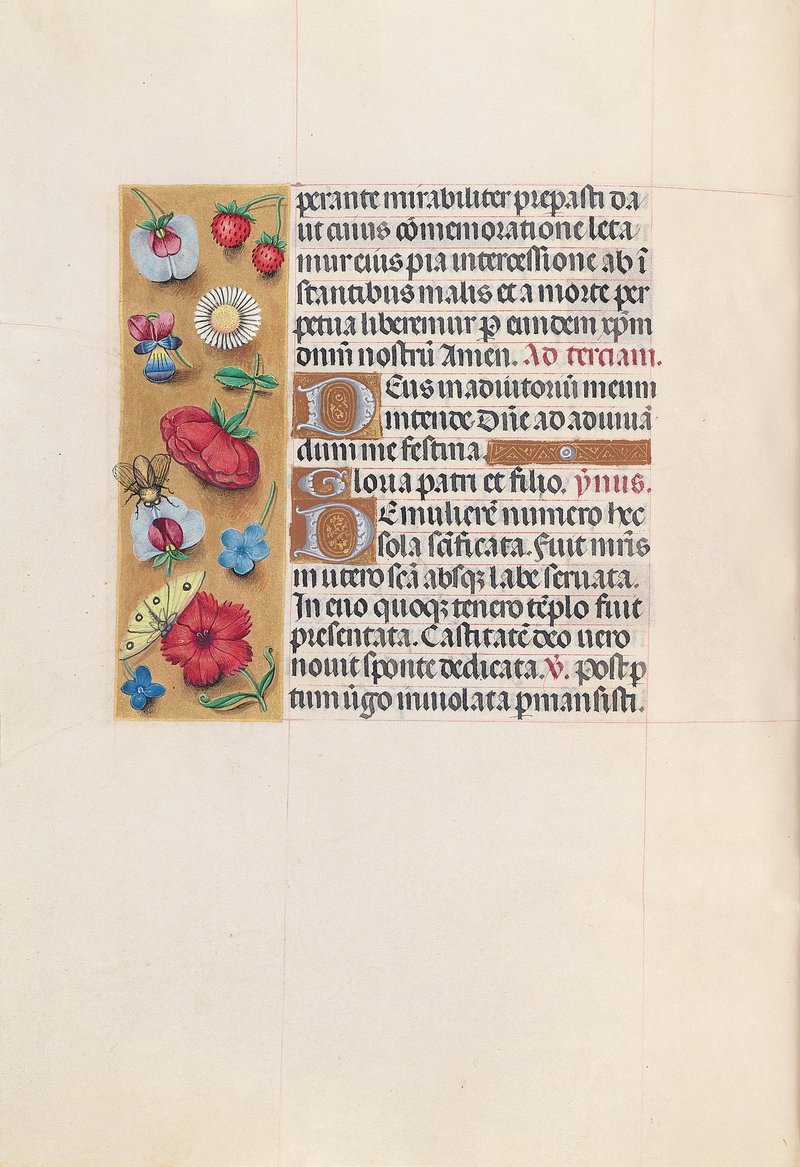 perante mirabiliter prepasti da
ut cuius cōmemoratione leta
mur eius pia intercessione ab ī
stantibus malis et a morte per
petua liberemur ꝑ eundem xp̄m
dnm̄ nostrū Amen. Ad terciam.
Deus in adiutoriū meum
intende Dn̄e ad adiuuā
dum me festina.
Gloria patri et filio. ym̄us.
De mulierē numero hec
sola sc̄ificata. Fuit mr̄is
in utero scā absqꝫ labe seruata.
In euo quoqꝫ tenero tēplo fuit
presentata. Castitatē deo uero
nouit sponte dedicata. V̄. post p
tum uīgo inuiolata ꝑmansisti.